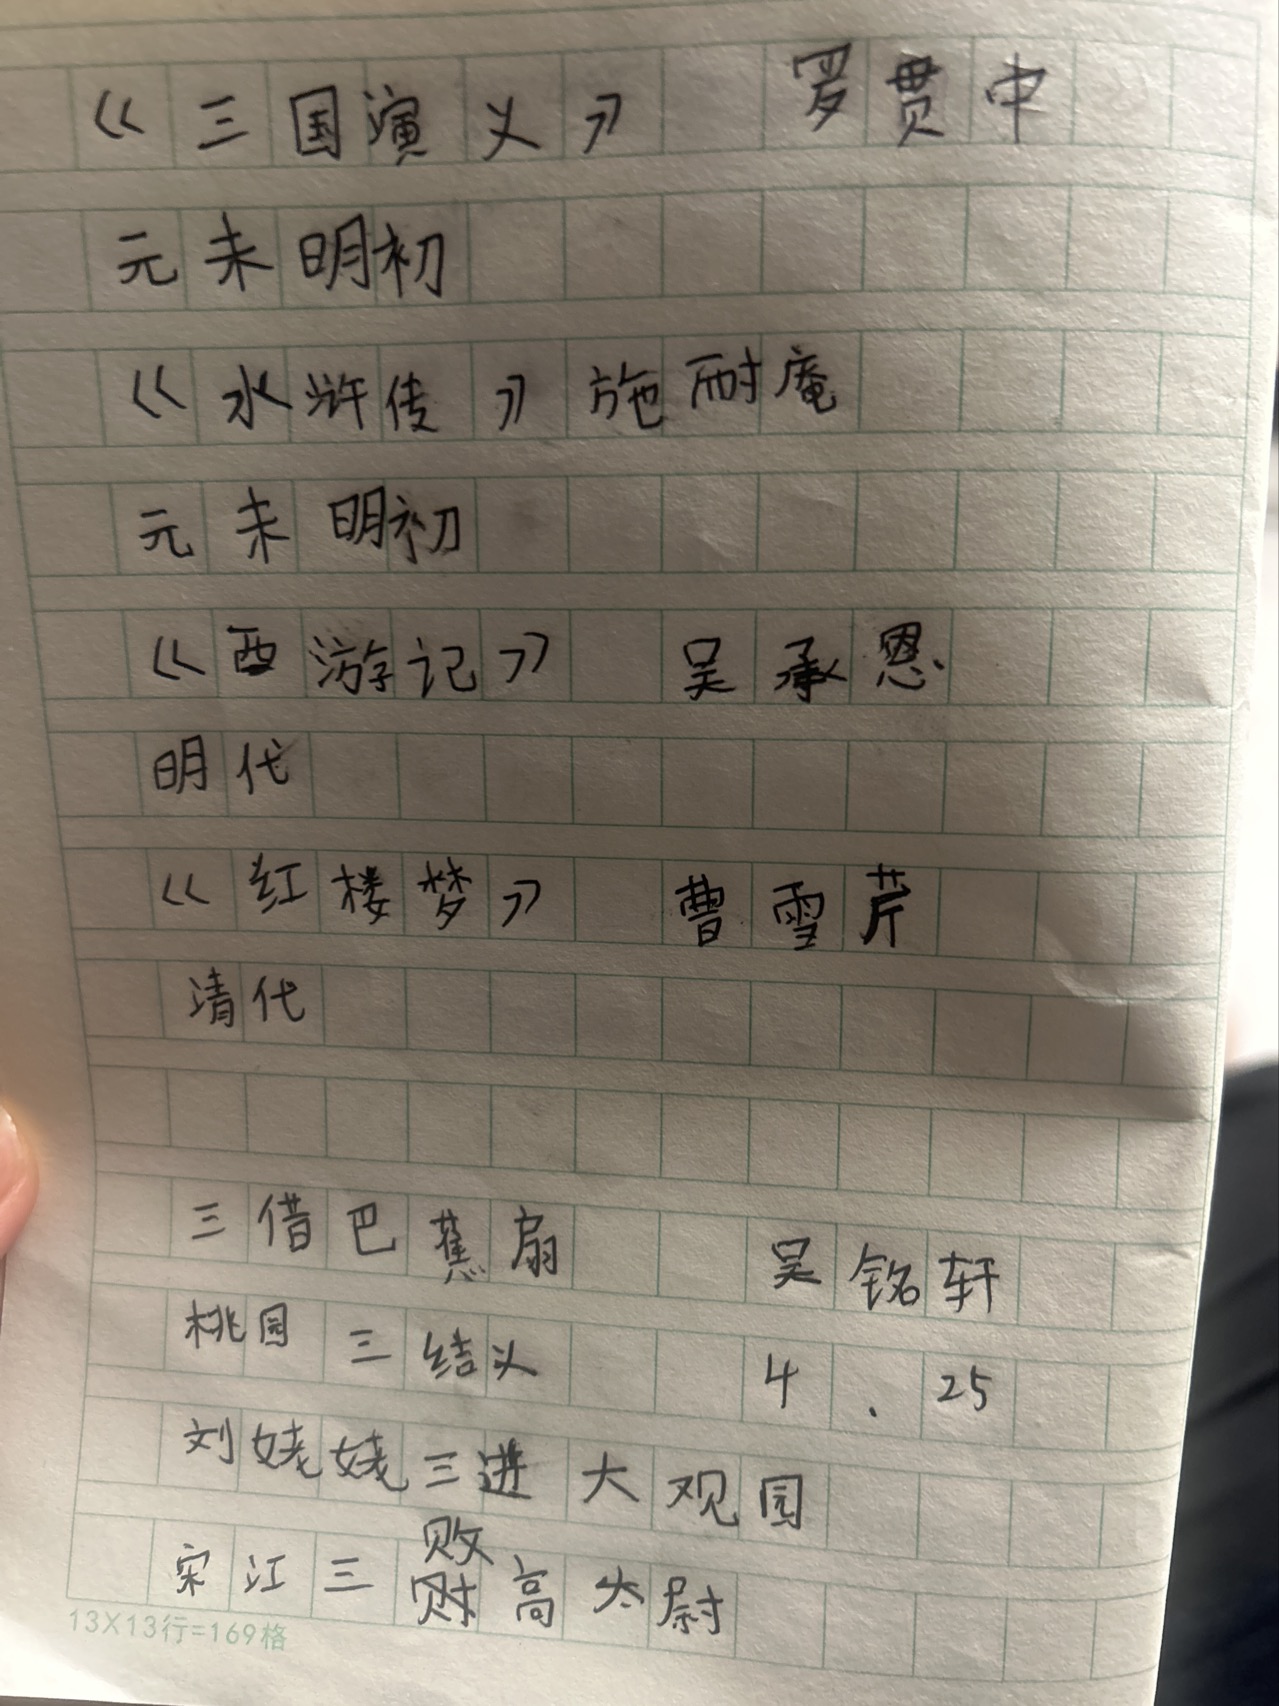 《三国演义》 罗贯中
元末明初
《水浒传》施耐庵
元末明初
《西游记》 吴承恩
明代
《红楼梦》 曹雪芹
清代
三借巴蕉扇 吴铭轩
桃园三结义 4.25
刘姥姥三进大观园
败
宋江三财高太尉
13X13行=169格